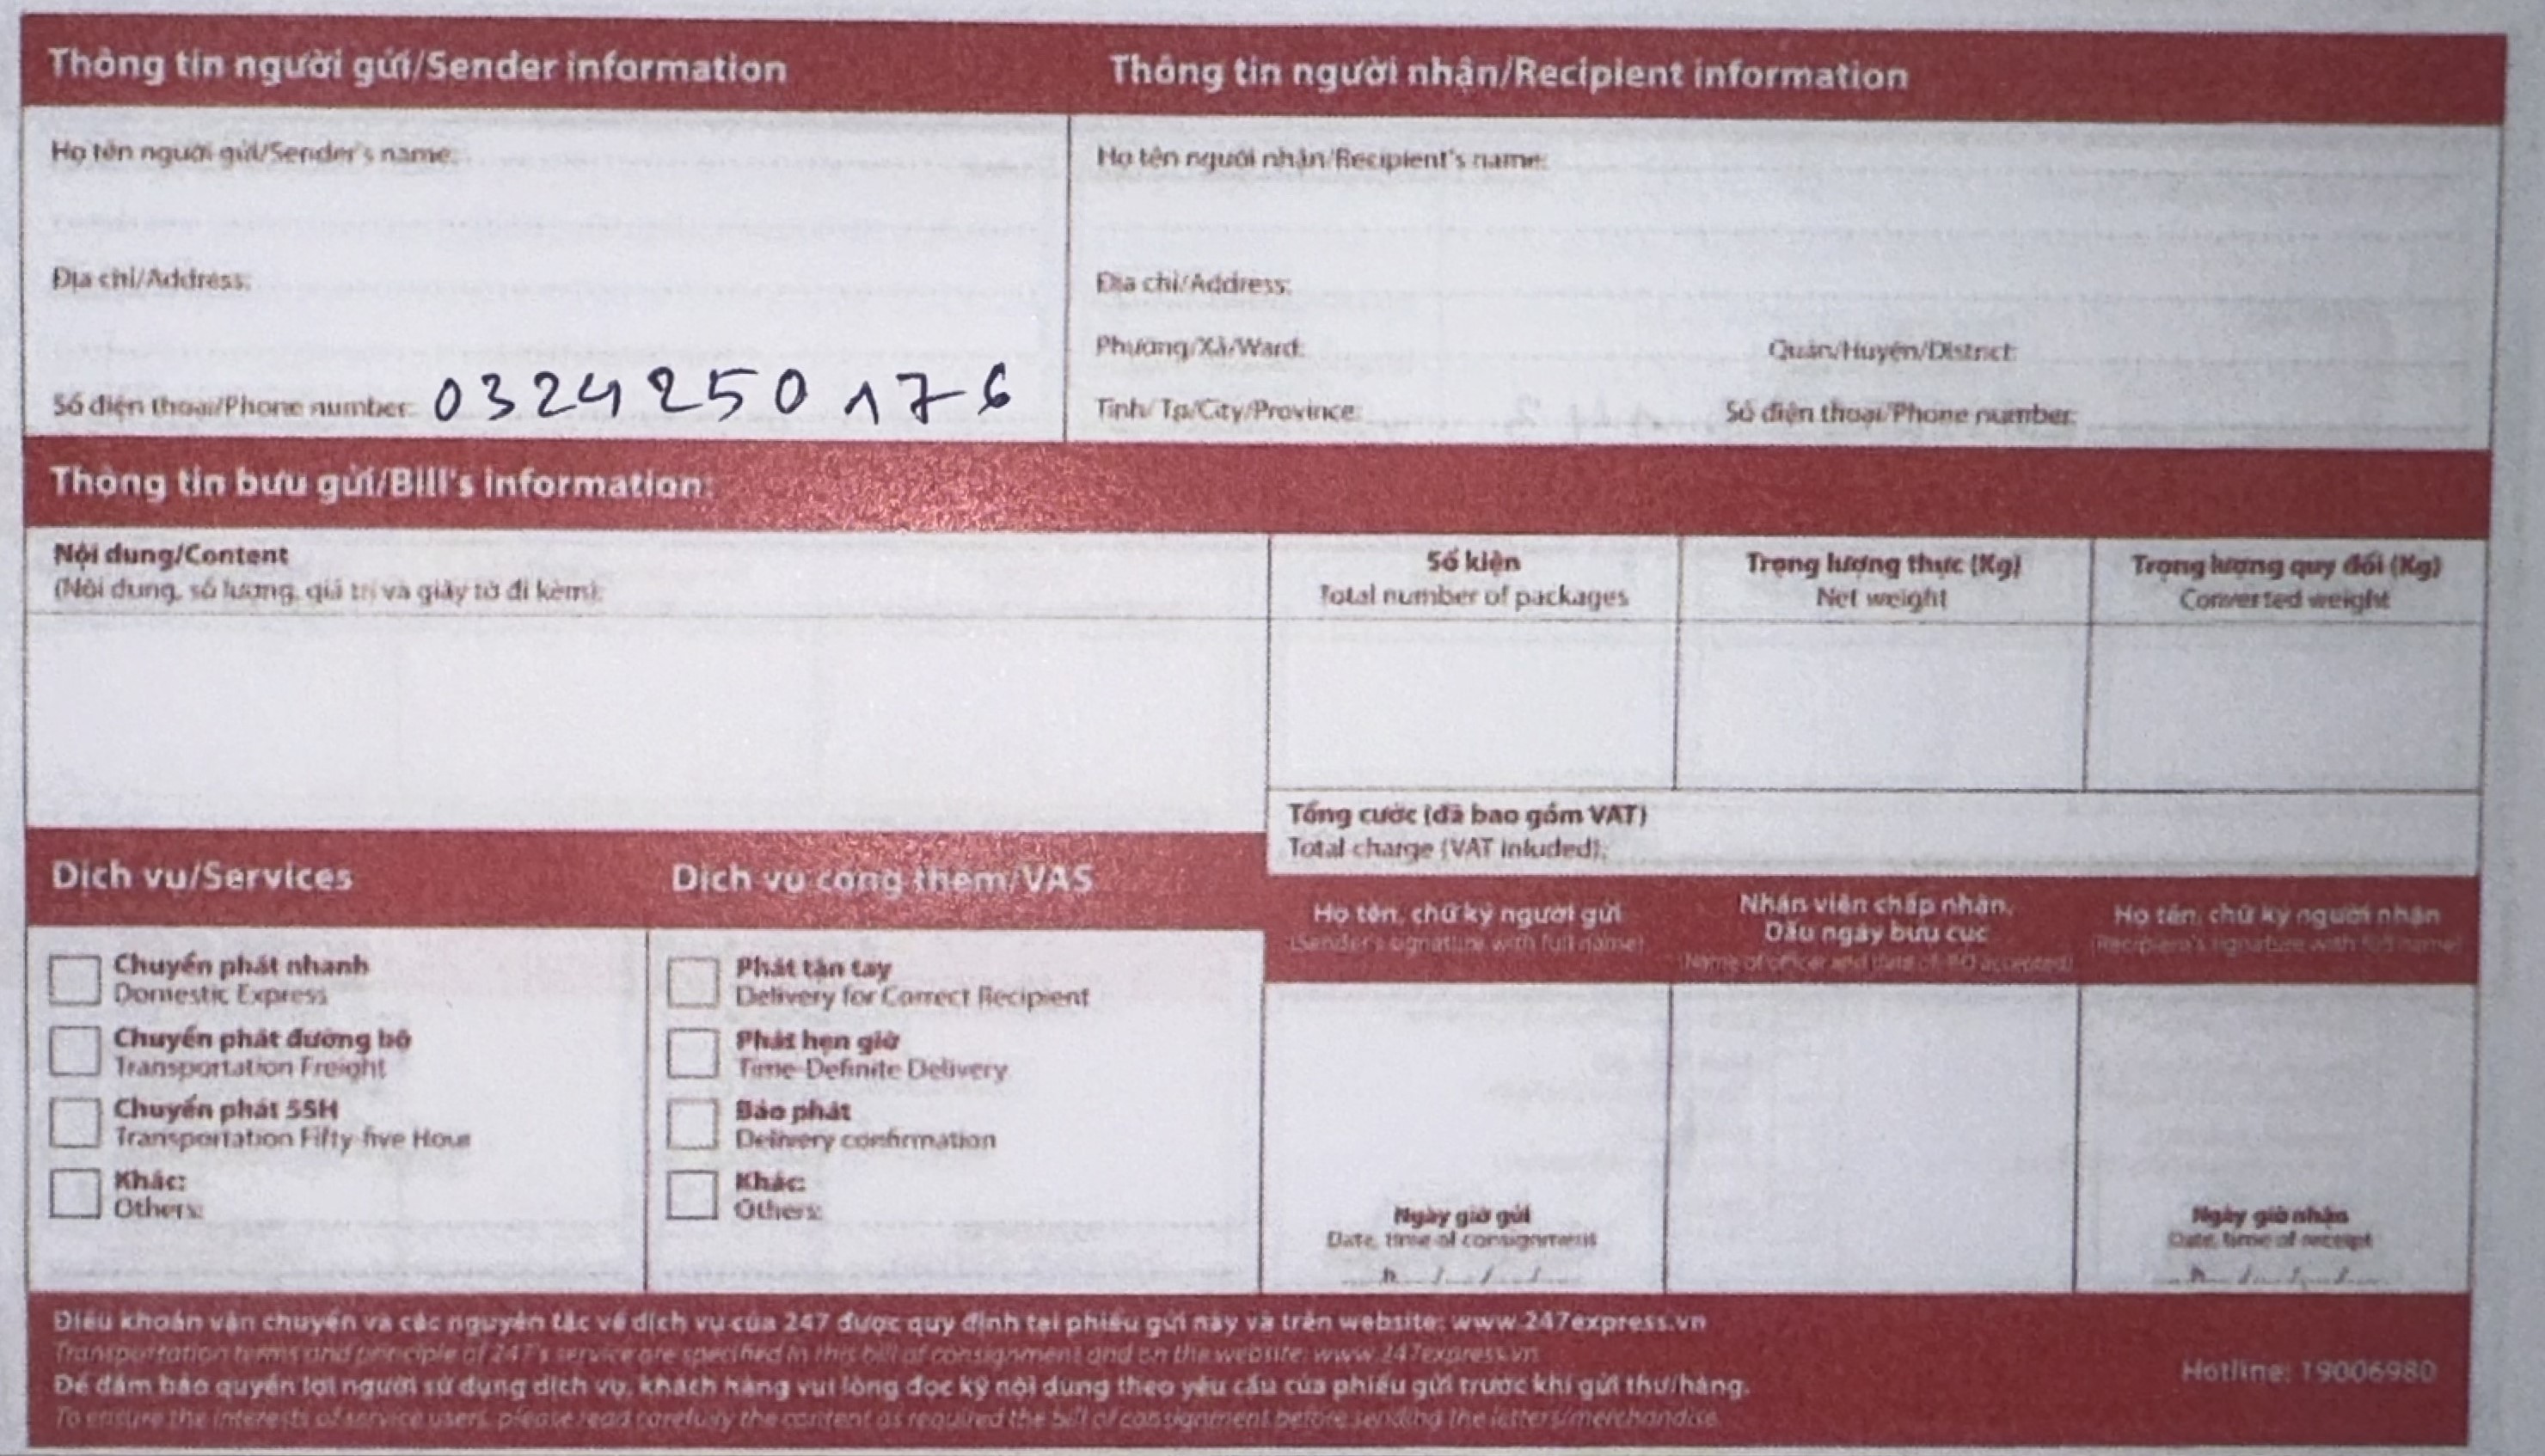 Thông tin người gửi/Sender information
Thông tin người nhận/Recipient information
Họ tên người gửi/Sender's name:
Họ tên người nhận/Recipient's name:
Địa chỉ/Address:
Địa chỉ/Address:
Phường/Xã/Ward:
Quận/Huyện/District:
Số điện thoại/Phone number: 0324250176
Tỉnh/Tp/City/Province:
Số điện thoại/Phone number:
Thông tin bưu gửi/Bill's information:
Nội dung/Content
(Nội dung, số lượng, giá trị và giấy tờ đi kèm):
Số kiện
Total number of packages
Trọng lượng thực (Kg)
Net weight
Trọng lượng quy đổi (Kg)
Converted weight
Tổng cước (đã bao gồm VAT)
Total charge (VAT inluded):
Dịch vụ/Services
Dịch vụ cộng thêm/VAS
Chuyển phát nhanh
Domestic Express
Chuyển phát đường bộ
Transportation Freight
Chuyển phát 55H
Transportation Fifty-five Hour
Khác:
Others:
Phát tận tay
Delivery for Correct Recipient
Phát hẹn giờ
Time-Definite Delivery
Báo phát
Delivery confirmation
Khác:
Others:
Họ tên, chữ ký người gửi
(Sender's signature with full name)
Nhân viên chấp nhận,
Dấu ngày bưu cục
(Name of officer and date of PO accepted)
Họ tên, chữ ký người nhận
(Recipient's signature with full name)
Ngày giờ gửi
Date, time of consignment
h / / /
Ngày giờ nhận
Date, time of receipt
h / / /
Điều khoản vận chuyển và các nguyên tắc về dịch vụ của 247 được quy định tại phiếu gửi này và trên website: www.247express.vn
Transportation terms and principle of 247's service are specified in this bill of consignment and on the website: www.247express.vn
Để đảm bảo quyền lợi người sử dụng dịch vụ, khách hàng vui lòng đọc kỹ nội dung theo yêu cầu của phiếu gửi trước khi gửi thư/hàng.
To ensure the interests of service users, please read carefully the content as required the bill of consignment before sending the letters/merchandise.
Hotline: 19006980